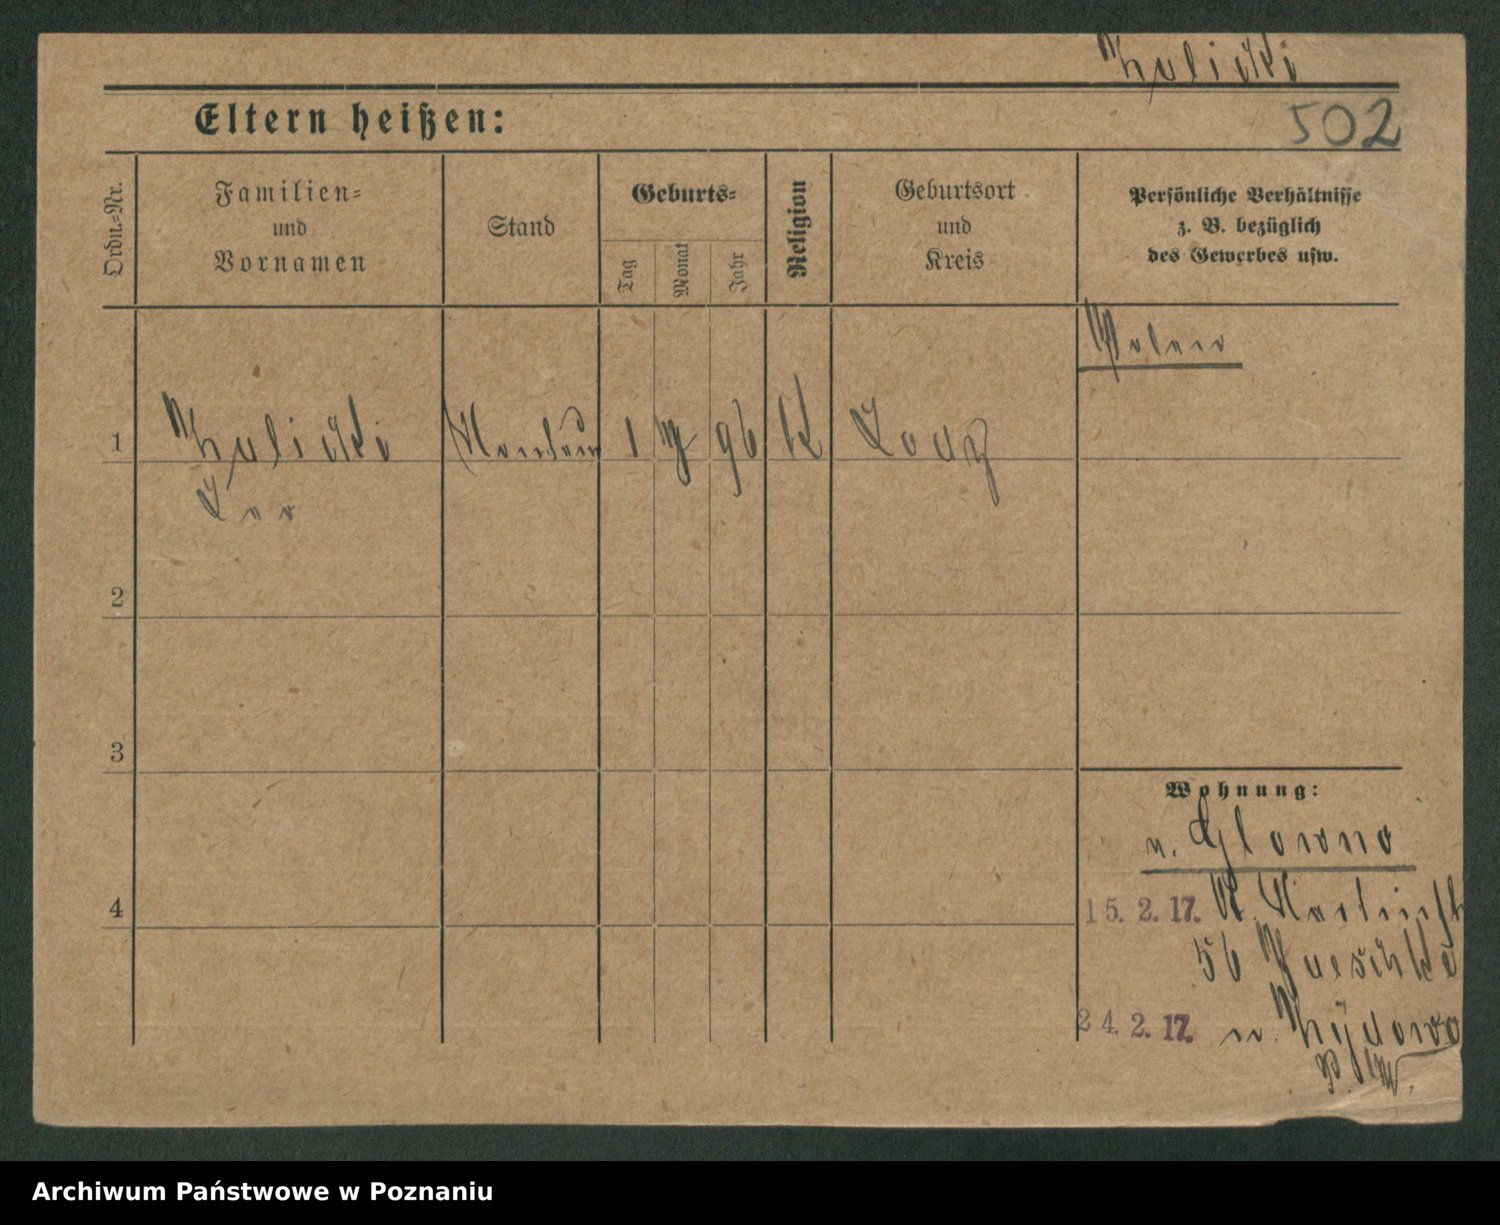 Zulicki
502
Eltern heißen:
Ordn.=Nr.
Familien=
und
Vornamen
Stand
Geburts=
Tag
Monat
Jahr
Religion
Geburtsort
und
Kreis
Persönliche Verhältnisse
z. B. bezüglich
des Gewerbes usw.
Polen
1 Zulicki 1 96 K Lodz
Leo
2
3
4
Wohnung:
n. Glowno
15. 2. 17.
56
24. 2. 17. n.
Archiwum Państwowe w Poznaniu